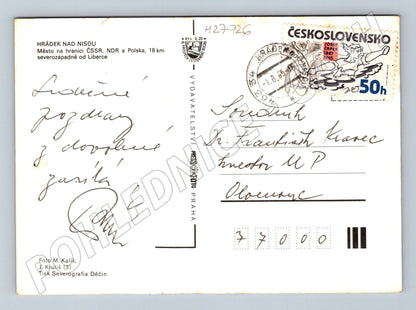 427926
HRÁDEK NAD NISOU
Město na hranici ČSSR, NDR a Polska, 18 km
severozápadně od Liberce
Srdečné
pozdravy
z dovolené
zasílá
VYDAVATELSTVÍ
PRAHA
ČESKOSLOVENSKO
50h
Soudruh
František Kravec
M P
Olomouc
77000
Foto M. Kalík,
Tisk Severografia Děčín
POHLEDNICE